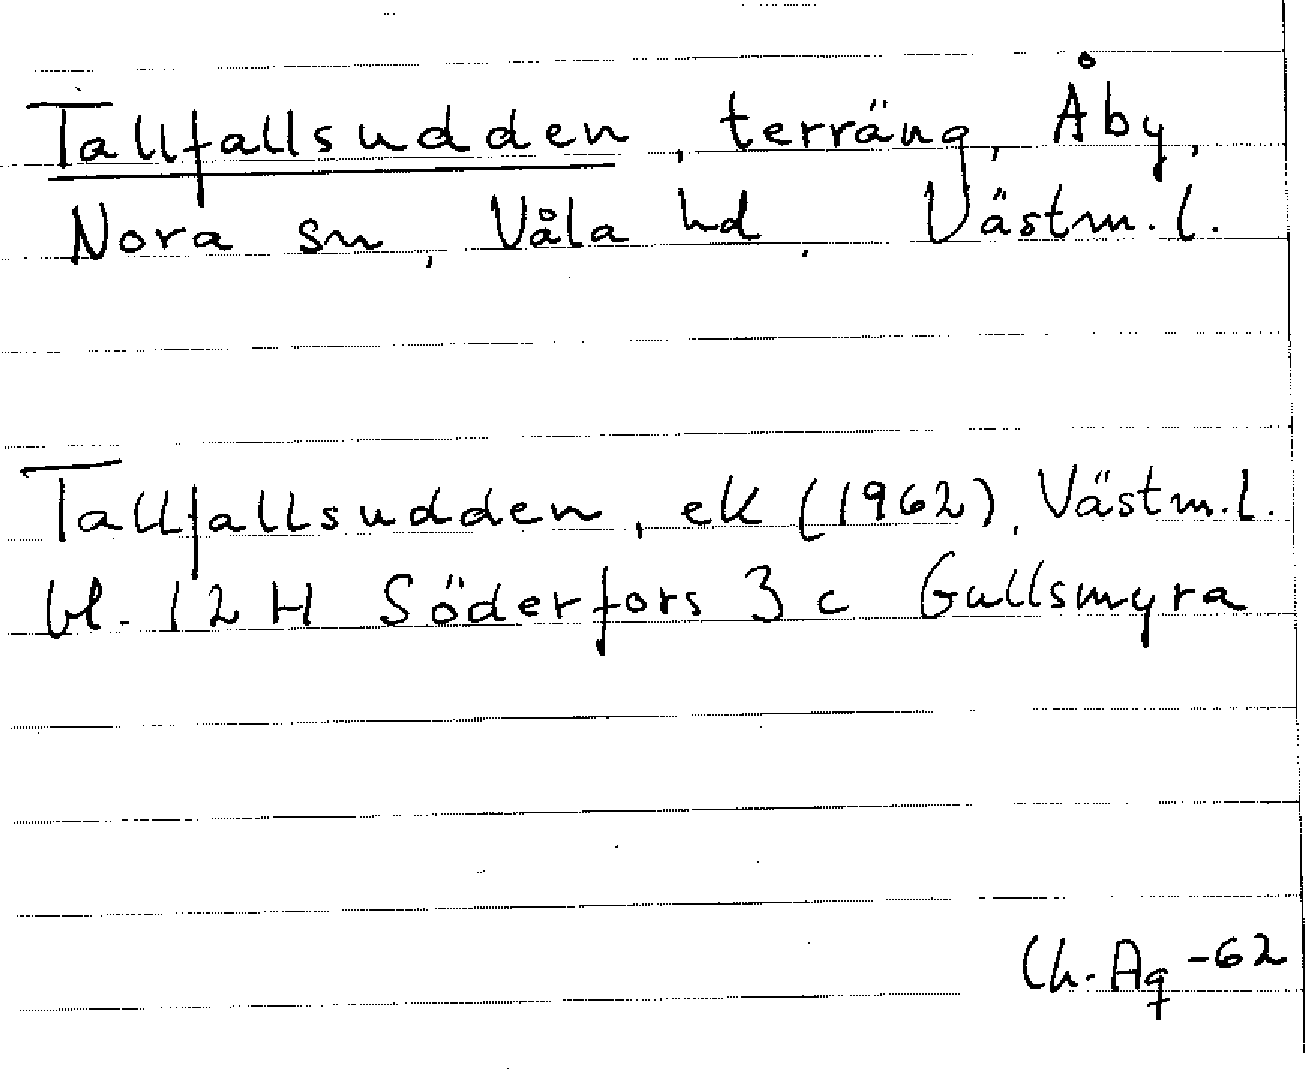 Tallfallsudden, terräng, Åby,
Nora sn, Våla hd, Västm. l.
Tallfallsudden, ek (1962), Västm. l.
bl. 12 H Söderfors 3 c Gullsmyra
Ch. Aq -62